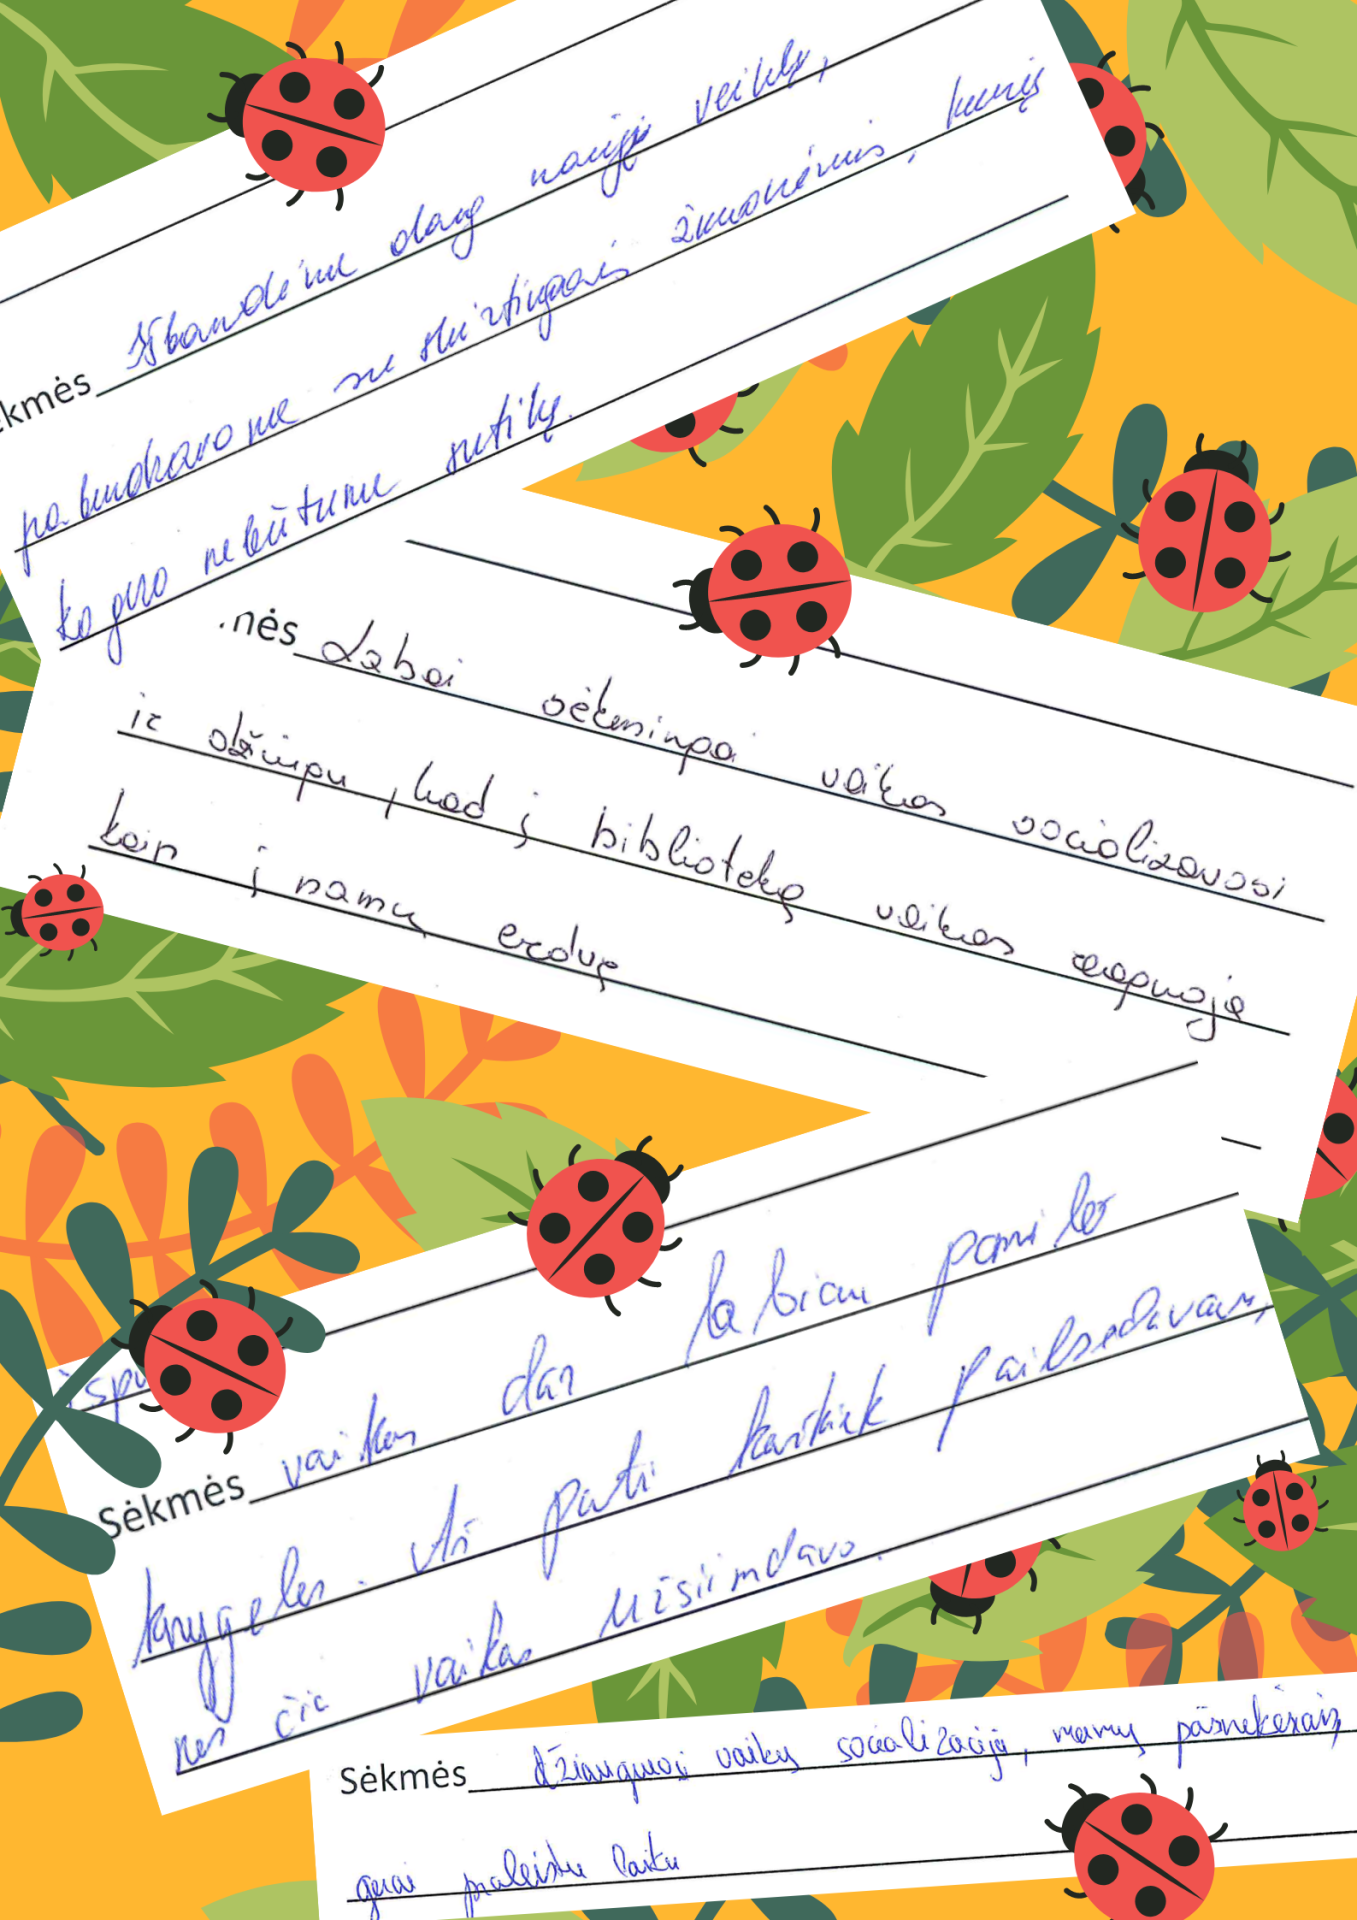 ėkmės Išbandėme daug naujų veiklų,
pabendravome su skirtingais žmonėmis, kurių
ko gero nebūtume sutikę.
mės Labai sėkmingai vaikas socializavosi
ir džiugu, kad į biblioteką vaikas reaguoja
kaip į namų erdvę
išpu
Sėkmės vaikas dar labiau pamilo
knygeles. Aš pati kažkiek pailsėdavau,
nes čia vaikas užsiimdavo.
Sėkmės džiaugiuosi vaikų socializacija, mamų pašnekesiais,
gerai praleistu laiku